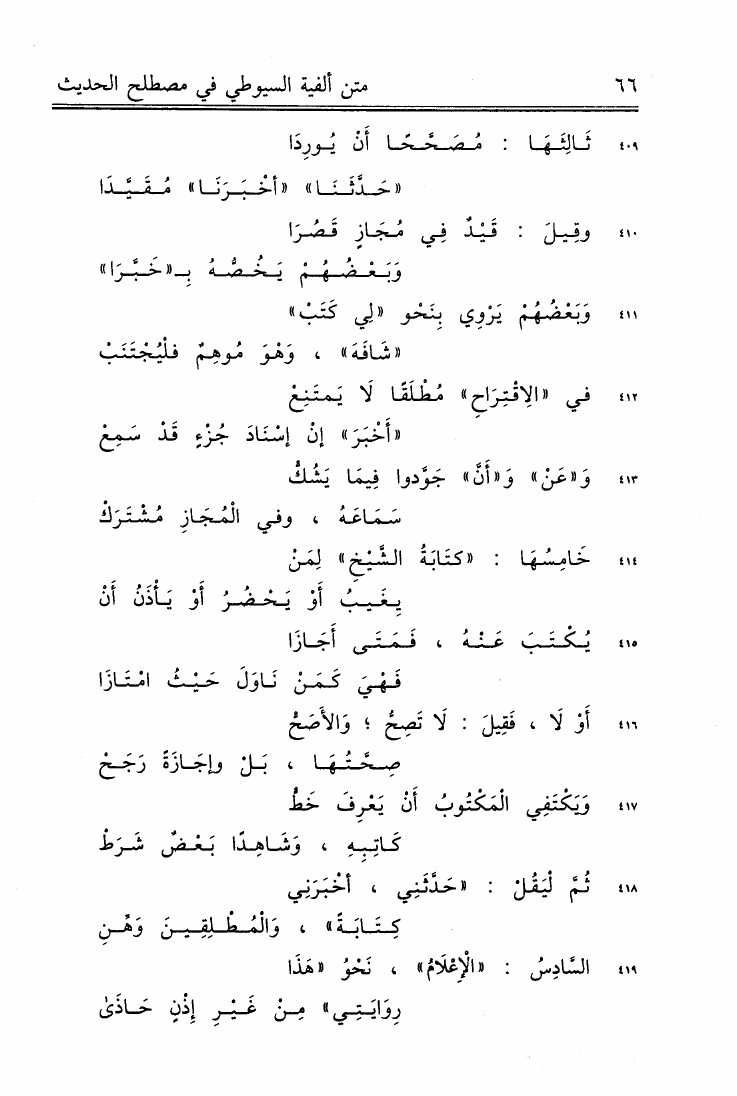 ٦٦ متن ألفية السيوطي في مصطلح الحديث
٤٠٩ ثَالِثَهَا : مُصَحَّحًا أَنْ يُورِدَا
«حَدَّثَنَا» «أَخْبَرَنَا» مُقَيَّدَا
٤١٠ وقِيلَ : قَيْدٌ فِي مُجَازٍ قَصُرَا
وَبَعْضُهُمْ يَخُصُّهُ بِـ«خَبَّرَا»
٤١١ وَبَعْضُهُمْ يَرْوِي بِنَحْوِ «لِي كَتَبْ»
«شَافَهَ» ، وَهْوَ مُوهِمٌ فلْيُجْتَنَبْ
٤١٢ في «الِاقْتِرَاحِ» مُطْلَقًا لَا يَمتَنِعْ
«أَخْبَرَ» إنْ إسْنَادَ جُزْءٍ قَدْ سَمِعْ
٤١٣ وَ«عَنْ» وَ«أَنَّ» جَوَّدوا فِيمَا يَشُكُّ
سَمَاعَهُ ، وفي الْمُجَازِ مُشْتَرَكْ
٤١٤ خَامِسُهَا : «كتَابَةُ الشَّيْخِ» لِمَنْ
يَغِيبُ أَوْ يَحْضُرُ أَوْ يَأْذَنُ أَنْ
٤١٥ يُكْتَبَ عَنْهُ ، فَمَتَى أَجَازَا
فَهْيَ كَمَنْ نَاوَلَ حَيْثُ امْتَازَا
٤١٦ أَوْ لَا ، فَقِيلَ : لَا تَصِحُّ ؛ وَالأَصَحُّ
صِحَّتُهَا ، بَلْ وإجَازَةً رَجَحْ
٤١٧ وَيَكْتَفِي الْمَكْتُوبُ أَنْ يَعْرِفَ خَطُّ
كَاتِبِهِ ، وَشَاهِدًا بَعْضٌ شَرَطْ
٤١٨ ثُمَّ لْيَقُلْ : «حَدَّثَنِي ، أخْبَرَنِي
كِتَابَةً» ، وَالْمُطْلِقِينَ وَهِّنِ
٤١٩ السَّادِسُ : «الْإعْلَامُ» ، نَحْوُ «هَذَا
رِوَايَتِي» مِنْ غَيْرِ إِذْنٍ حَاذَىٰ